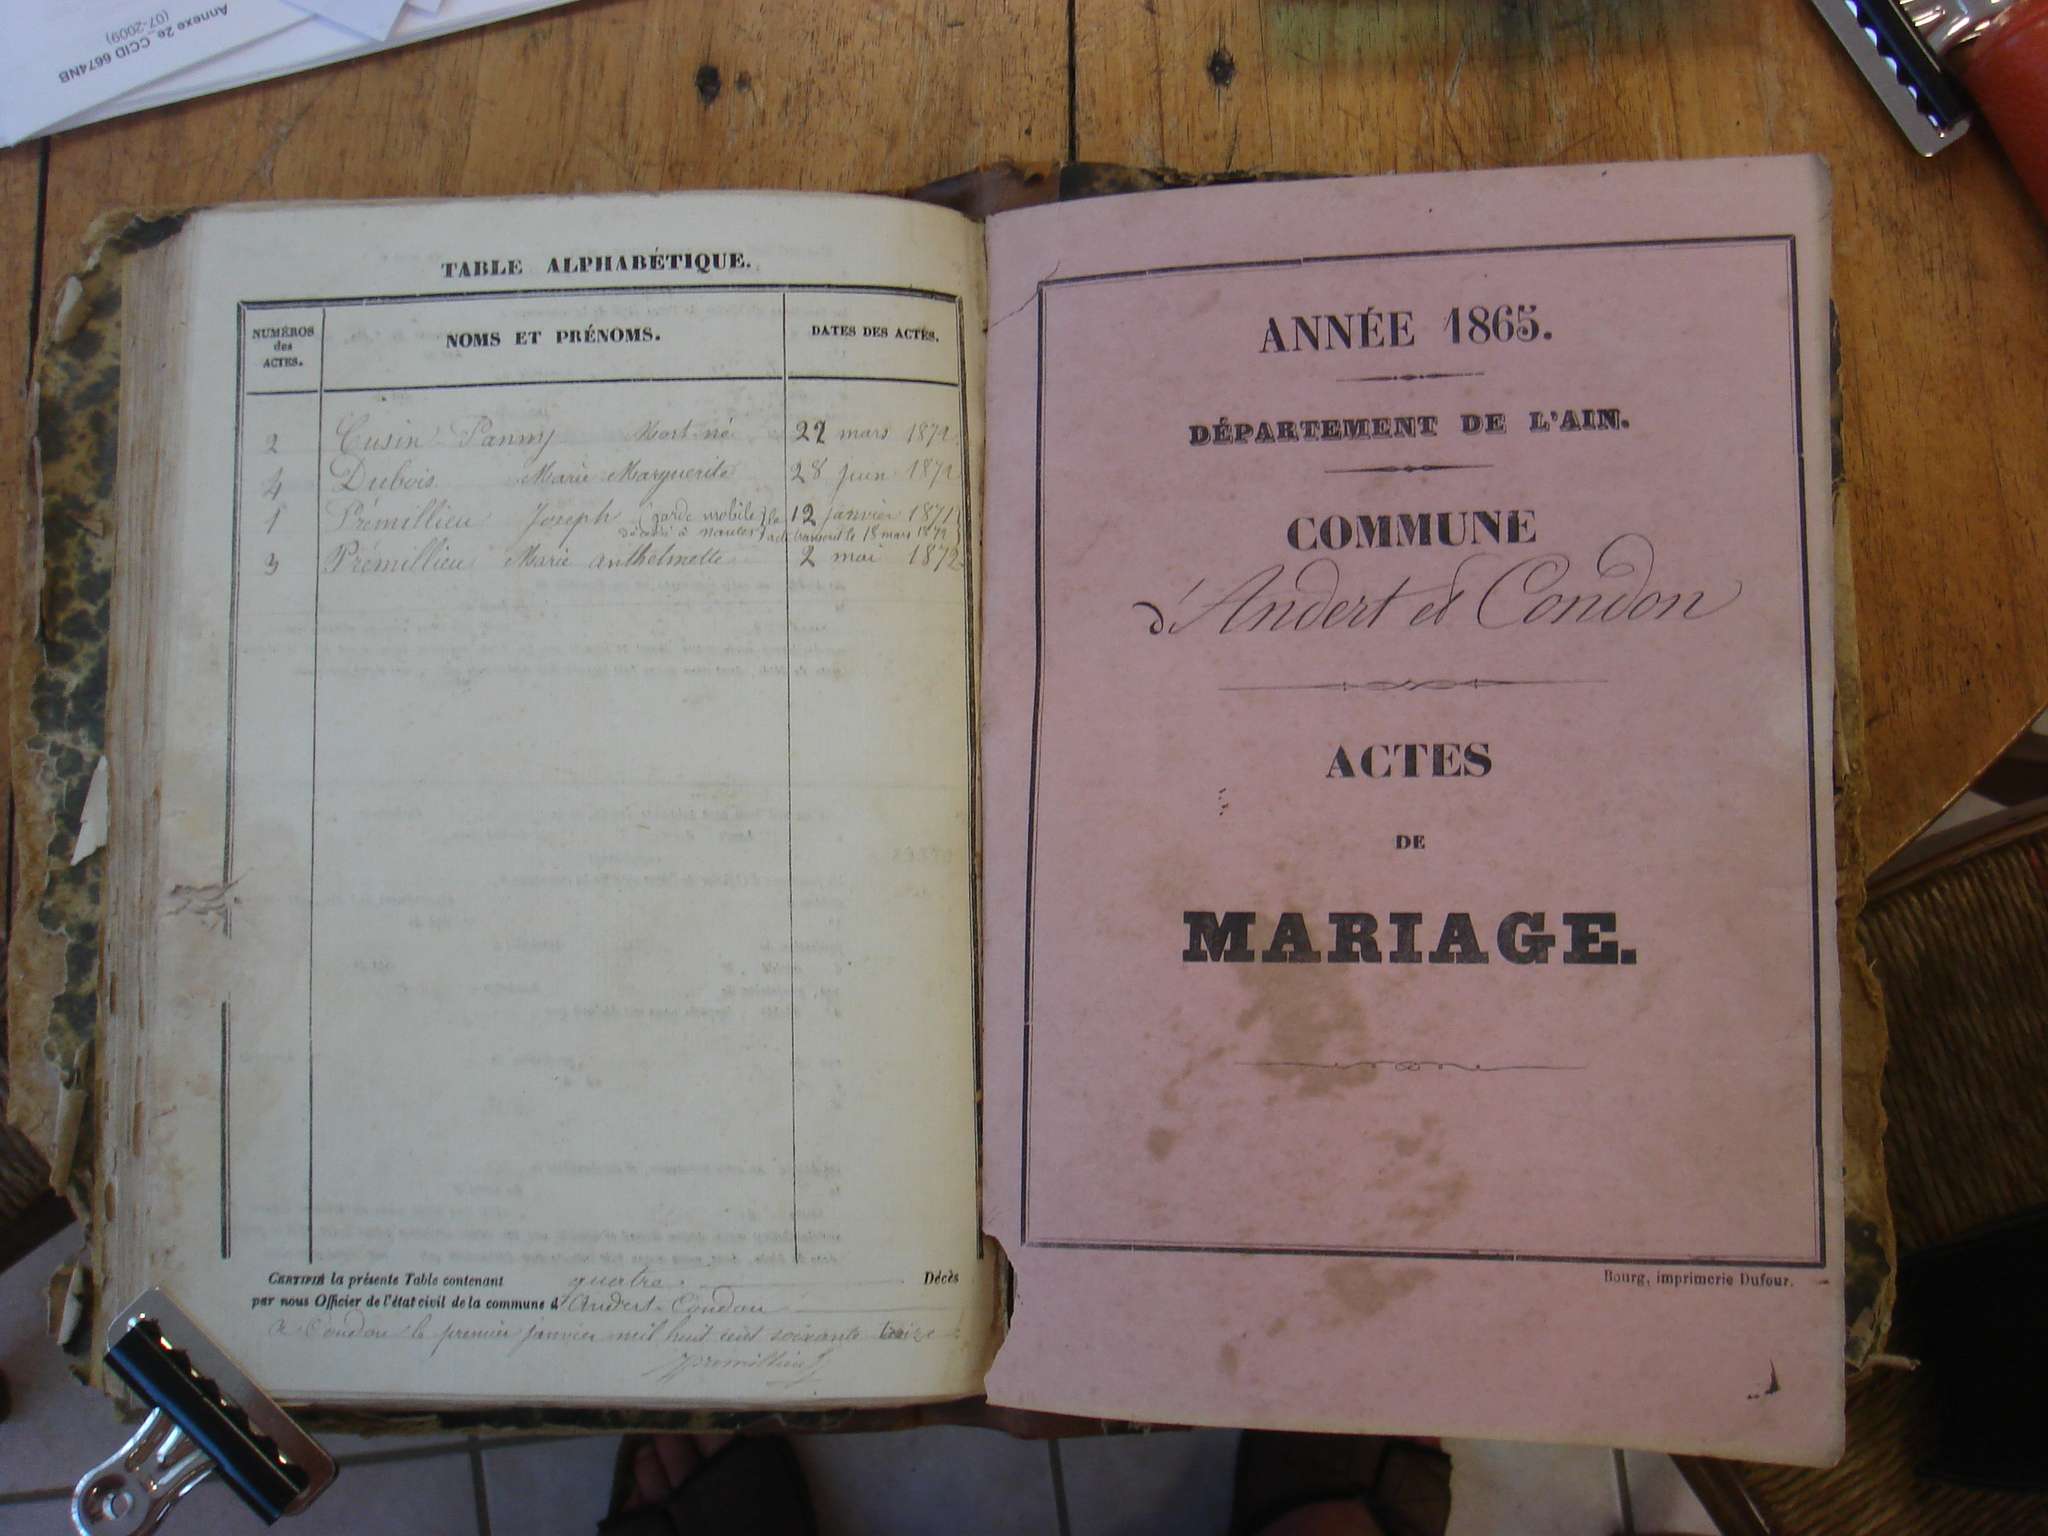 Annexe 2e_CCID 6674NB
(07-2009)
TABLE ALPHABÉTIQUE.
NUMÉROS
des
ACTES.
NOMS ET PRÉNOMS.
DATES DES ACTES.
2 Cusin Mort né 22 mars 1872
4 Dubois Marie Marguerite 28 juin 1872
1 Prémillieu Joseph (garde mobile) le 12 janvier 1871
décédé à nantes) acte transcrit le 18 mars 1872
3 Prémillieu Marie anthelmette 2 mai 1872
CERTIFIÉ la présente Table contenant quatre Décès
par nous Officier de l'état civil de la commune d'Andert-Condon
à Condon le premier janvier mil huit cent soixante treize
Prémillieu
ANNÉE 1865.
DÉPARTEMENT DE L'AIN.
COMMUNE
d'Andert et Condon
ACTES
DE
MARIAGE.
Bourg, imprimerie Dufour.